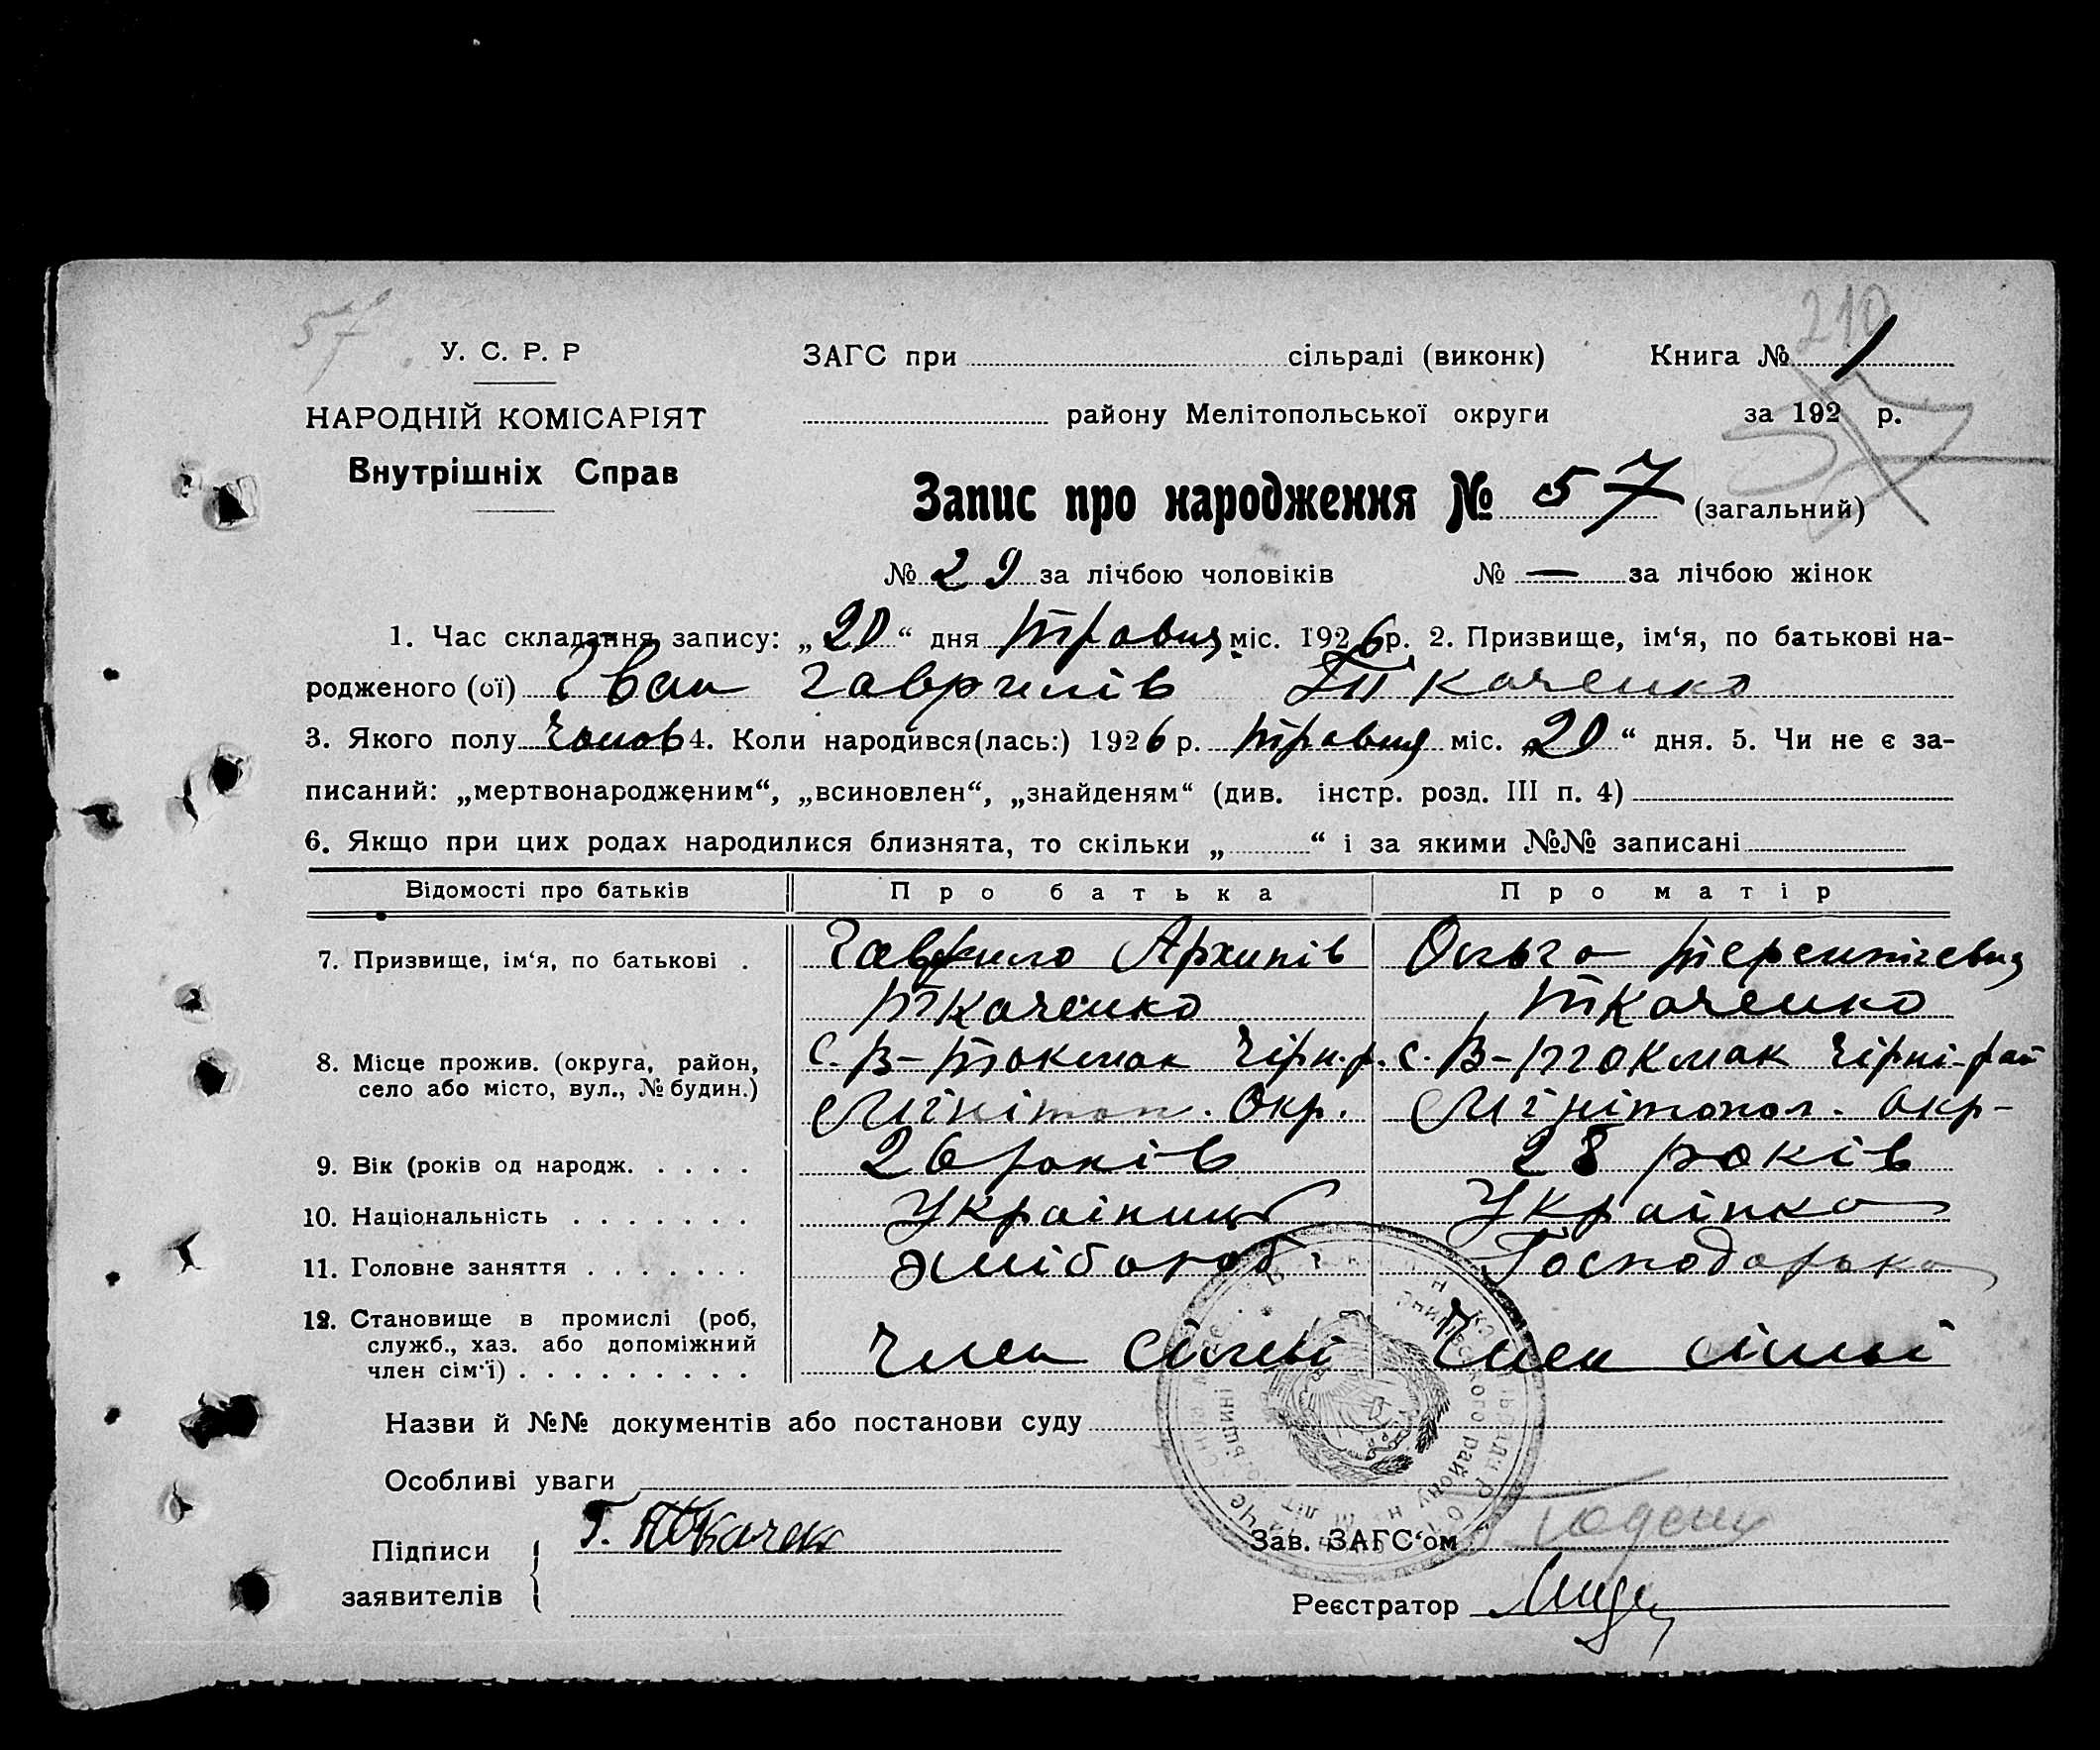 57
210
У. С. Р. Р
ЗАГС при сільраді (виконк) Книга № 1
НАРОДНІЙ КОМІСАРІЯТ
району Мелітопольської округи за 192 р.
57
Внутрішніх Справ
Запис про народження № 57 (загальний)
№ 29 за лічбою чоловіків № — за лічбою жінок
1. Час складання запису: „20“ дня Травня міс. 1926 р. 2. Призвище, ім‘я, по батькові на-
родженого (ої) Іван Гаврилів Ткаченко
3. Якого полу Чолов 4. Коли народився(лась:) 1926 р. травня міс. „20“ дня. 5. Чи не є за-
писаний: „мертвонародженим“, „всиновлен“, „знайденям“ (див. інстр. розд. III п. 4)
6. Якщо при цих родах народилися близнята, то скільки „ “ і за якими №№ записані
Відомості про батьків Про батька Про матір
7. Призвище, ім‘я, по батькові . Гаврило Архипів Ольга
Ткаченко Ткаченко
8. Місце прожив. (округа, район, С. В-Токмак Чірн.р. С. В-Токмак Чірні-рай
село або місто, вул., № будин.) Окр. Окр-
9. Вік (років од народж. . . . . 26 років 28 років
10. Національність . . . . . . . Українець Українка
11. Головне заняття . . . . . . . Господарька
12. Становище в промислі (роб, Член сімьі Член сімьі
служб., хаз. або допоміжний
член сім‘ї) . . . . . . . . .
Назви й №№ документів або постанови суду
Особливі уваги
Підписи Г. Ткачен Зав. ЗАГС‘ом
заявителів Реєстратор